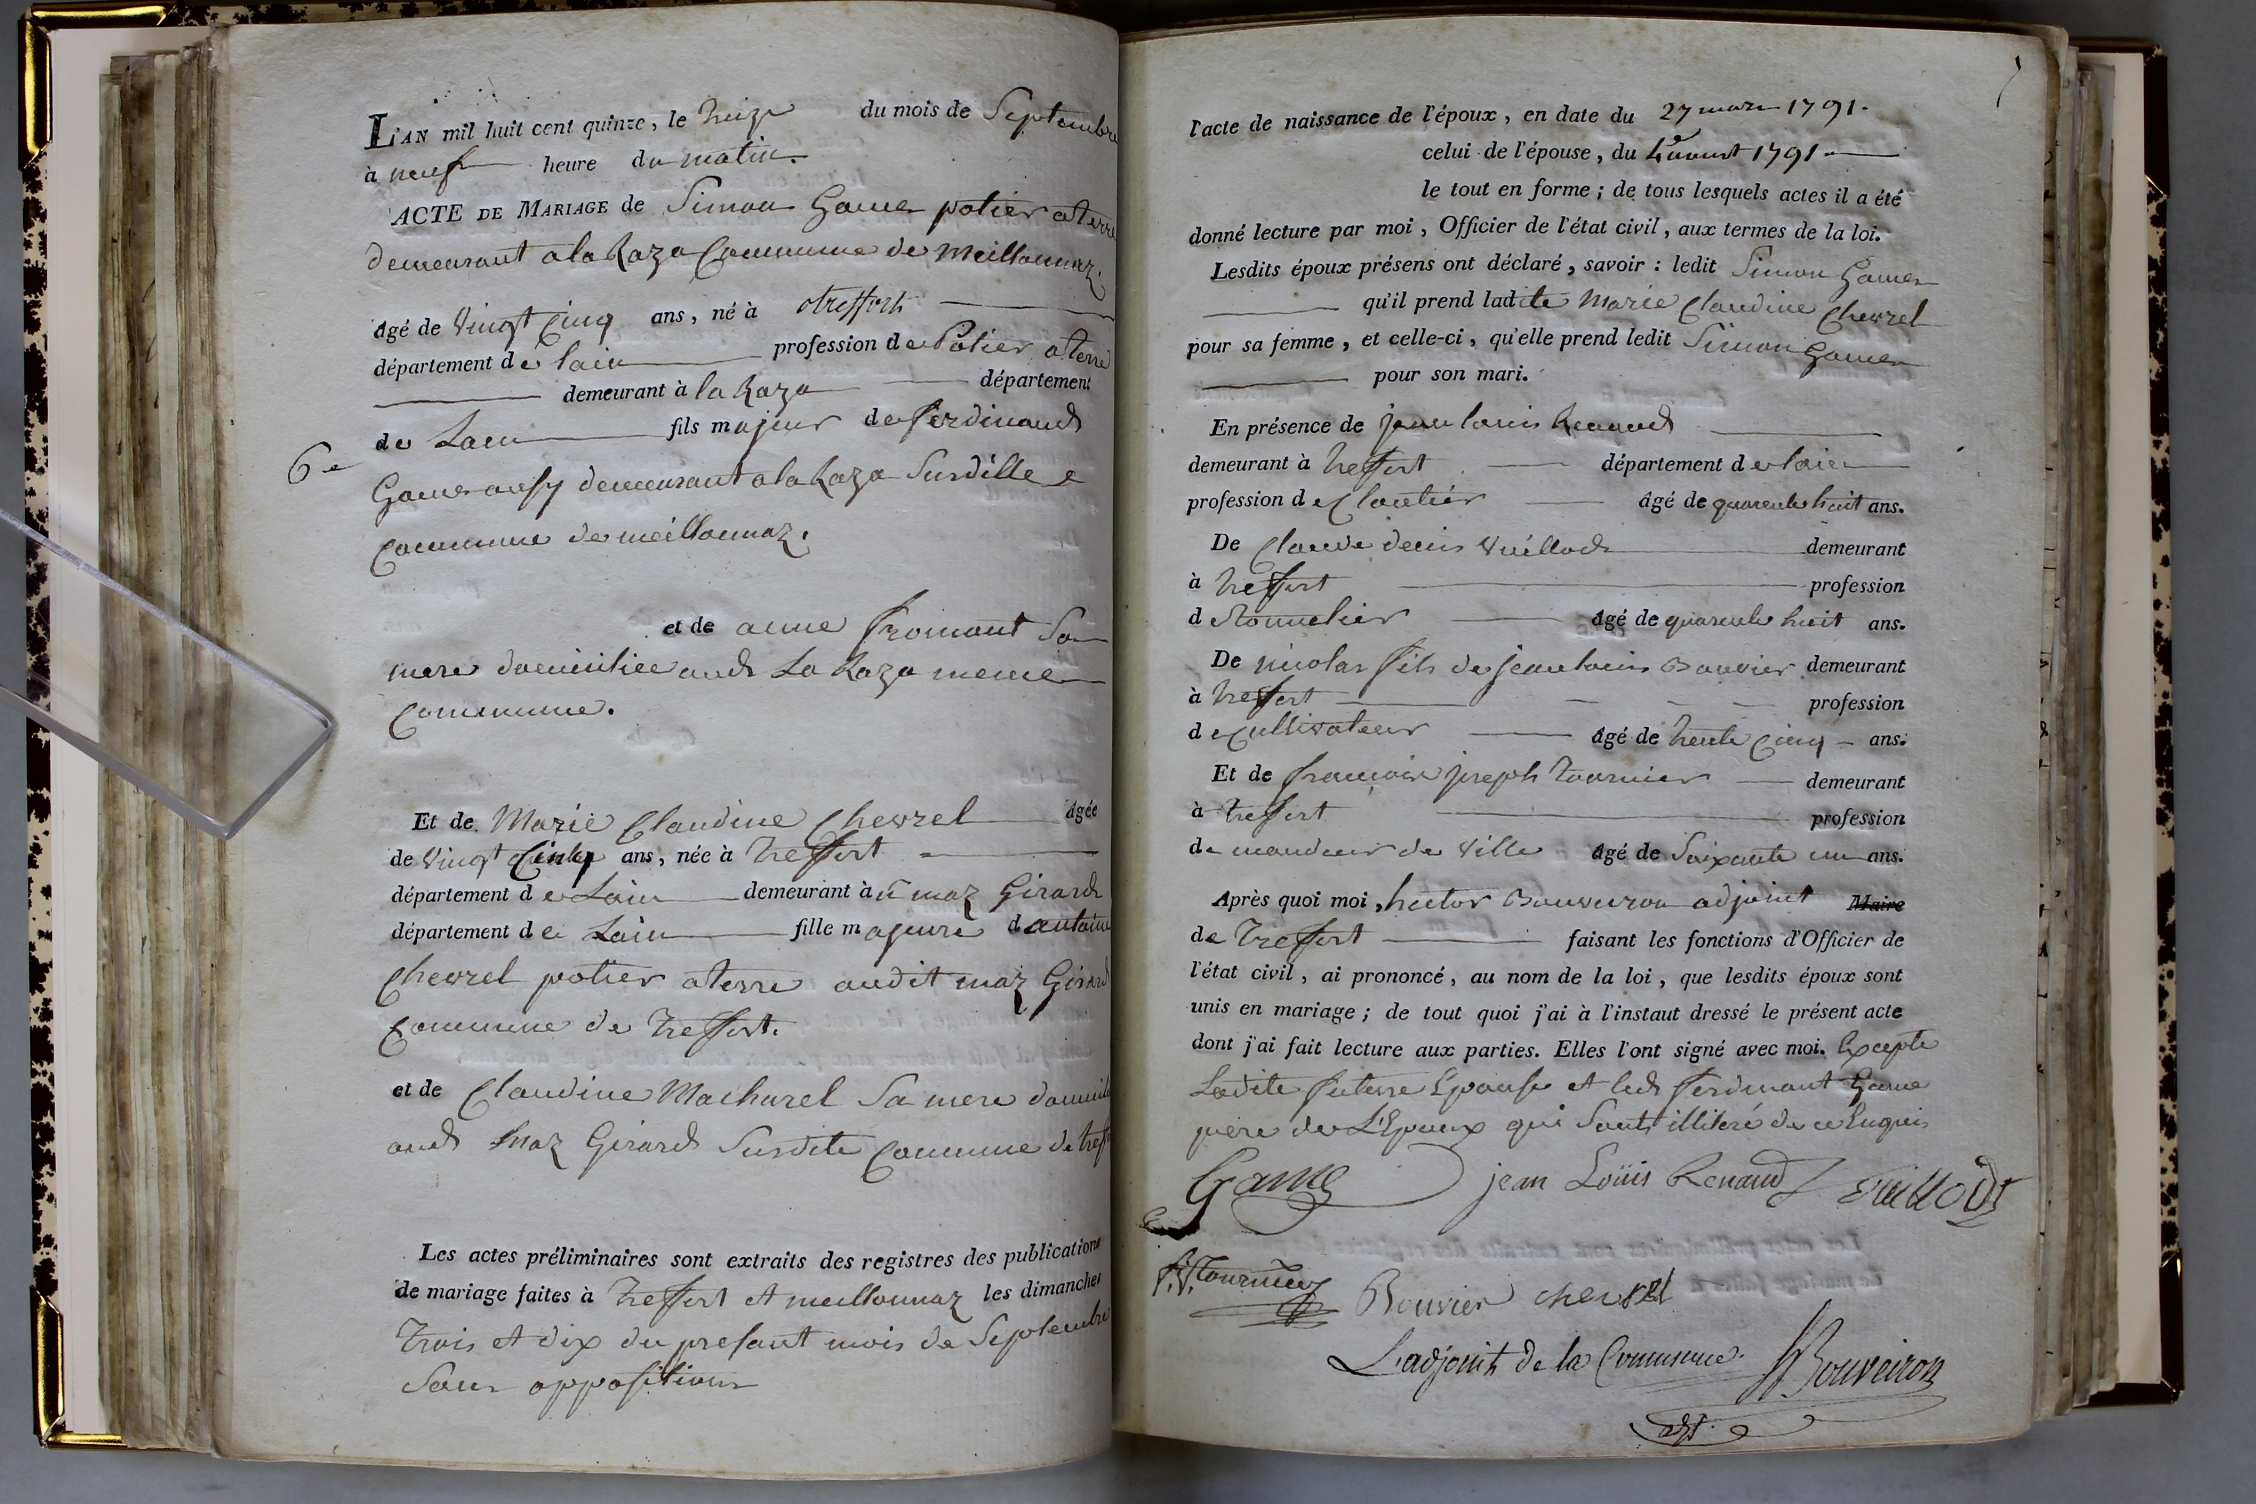 L'AN mil huit cent quinze, le treize du mois de Septembre
à neuf heure du matin.
ACTE DE MARIAGE de Simon Game potier a terre
demeurant a la Raza Commune de Meillonnaz.
âgé de Vingt Cinq ans, né à treffort
département de lain profession de Potier a terre
demeurant à la Raza département
de Lain fils majeur de ferdinand
6e
Game ausy demeurant a la Raza Susditte
Commune de meillonnaz.
et de anne fromont Sa
mere domiciliee aud La Raza meme
Commune.
Et de Marie Claudine Chevrel âgée
de Vingt Cinq ans, née à treffort
département de Lain demeurant à maz Girard
département de Lain fille majeure d antoine
Chevrel potier a terre audit maz Girard
Commune de treffort.
et de Claudine Machurel Sa mere domicile
aud maz Girard Susdite Commune de treff
Les actes préliminaires sont extraits des registres des publications
de mariage faites à treffort et meillonnaz les dimanches
Trois et dix du presant mois de Septembre
Sans opposition
l'acte de naissance de l'époux, en date du 27 mars 1791.
celui de l'épouse, du aoust 1791
le tout en forme; de tous lesquels actes il a été
donné lecture par moi, Officier de l'état civil, aux termes de la loi.
Lesdits époux présens ont déclaré, savoir: ledit Simon Game
qu'il prend ladite Marie Claudine Chevrel
pour sa femme, et celle-ci, qu'elle prend ledit Simon Game
pour son mari.
En présence de jean louis Renaud
demeurant à treffort département de lain
profession de Cloutier âgé de quarente huit ans.
De Claude denis Vuillod demeurant
à treffort profession
d tonnelier âgé de quarente huit ans.
De nicolas fils de jean louis Bouvier demeurant
à treffort profession
de Cultivateur âgé de trente Cinq ans.
Et de françois joseph tournier demeurant
à treffort profession
de mandeur de Ville âgé de Soixante un ans.
Après quoi moi, hector Bouveiron adjoint Maire
de Treffort faisant les fonctions d'Officier de
l'état civil, ai prononcé, au nom de la loi, que lesdits époux sont
unis en mariage; de tout quoi j'ai à l'instaut dressé le présent acte
dont j'ai fait lecture aux parties. Elles l'ont signé avec moi. Excepté
Ladite future Epouse et led ferdinant Game
pere de L'Epoux qui Sont illiteré de ce Enquis
Game jean Loüis Renaud Vuillodt
f. j. Tournier Bouvier chevrel
L'adjoint de la Commune. H Bouveiron
adj.